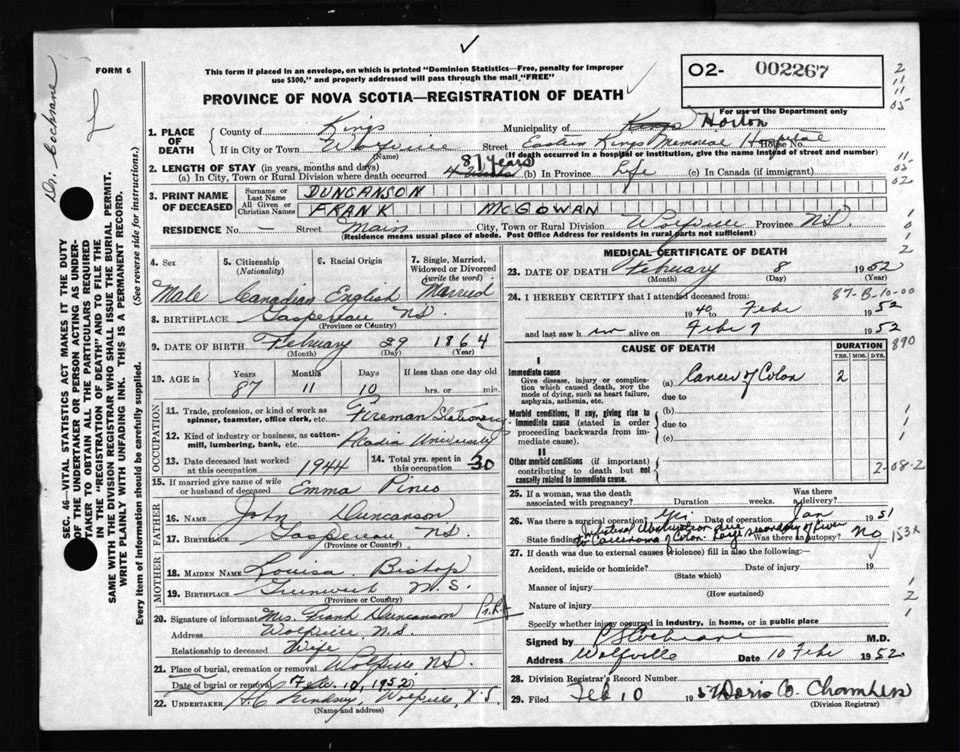 Dr. Cochrane
FORM 6
This form if placed in an envelope, on which is printed "Dominion Statistics—Free, penalty for improper
use $300," and properly addressed will pass through the mail "FREE"
PROVINCE OF NOVA SCOTIA—REGISTRATION OF DEATH
O2- 002267
For use of the Department only
2
11
11
05
11
05
02
1. PLACE OF DEATH
County of Kings Municipality of Kings Horton
If in City or Town Wolfville Street Eastern Kings Memorial Hospital House No.
(Name) (If death occurred in a hospital or institution, give the name instead of street and number)
2. LENGTH OF STAY (in years, months and days) 87 years
(a) In City, Town or Rural Division where death occurred (b) In Province Life (c) In Canada (if immigrant)
3. PRINT NAME OF DECEASED
Surname or Last Name DUNCANSON
All Given or Christian Names FRANK McGOWAN
RESIDENCE No. — Street Main City, Town or Rural Division Wolfville Province N.S.
(Residence means usual place of abode. Post Office Address for residents in rural parts not sufficient)
4. Sex 5. Citizenship (Nationality) 6. Racial Origin 7. Single, Married, Widowed or Divorced (write the word)
Male Canadian English Married
8. BIRTHPLACE Gaspereau N.S.
(Province or Country)
9. DATE OF BIRTH February 29 1864
(Month) (Day) (Year)
10. AGE in Years Months Days If less than one day old
87 11 10 hrs. or min.
OCCUPATION
11. Trade, profession, or kind of work as spinner, teamster, office clerk, etc. Fireman Stationary
12. Kind of industry or business, as cotton-mill, lumbering, bank, etc. Acadia University
13. Date deceased last worked at this occupation 1944 14. Total yrs. spent in this occupation 30
15. If married give name of wife or husband of deceased Emma Pineo
FATHER
16. NAME John Duncanson
17. BIRTHPLACE Gaspereau N.S.
(Province or Country)
MOTHER
18. MAIDEN NAME Louisa Bishop
19. BIRTHPLACE Greenwich N.S.
(Province or Country)
20. Signature of informant Mrs. Frank Duncanson
Address Wolfville, N.S.
Relationship to deceased Wife
21. Place of burial, cremation or removal Wolfville N.S.
Date of burial or removal Feb. 10, 1952
22. UNDERTAKER Lindsay, Wolfville, N.S.
(Name and address)
MEDICAL CERTIFICATE OF DEATH
23. DATE OF DEATH February 8 1952
(Month) (Day)
24. I HEREBY CERTIFY that I attended deceased from: 87-B-10-00
1940 to Feb 1952
and last saw h im alive on Feb 7 1952
890
CAUSE OF DEATH
DURATION
YRS. MOS. DYS.
I
Immediate cause
Give disease, injury or complication which caused death, not the mode of dying, such as heart failure, asphyxia, asthenia, etc.
(a) Cancer of Colon 2
due to
Morbid conditions, if any, giving rise to immediate cause (stated in order proceeding backwards from immediate cause).
(b)
due to
(c)
II
Other morbid conditions (if important) contributing to death but not causally related to immediate cause.
2-08-2
25. If a woman, was the death associated with pregnancy? Duration weeks. Was there a delivery?
26. Was there a surgical operation? Yes Date of operation Jan 1951
State findings Intestinal Obstruction due to Carcinoma of Colon. Large secondary of liver Was there an autopsy? No
153x
27. If death was due to external causes (violence) fill in also the following:—
Accident, suicide or homicide? Date of injury 19
(State which)
Manner of injury
(How sustained)
Nature of injury
Specify whether injury occurred in industry, in home, or in public place
Signed by Cochrane M.D.
Address Wolfville Date 10 Feb 1952
28. Division Registrar's Record Number
29. Filed Feb 10 195 Doris O. Chambers
(Division Registrar)
SEC. 46—VITAL STATISTICS ACT MAKES IT THE DUTY
OF THE UNDERTAKER OR PERSON ACTING AS UNDER-
TAKER TO OBTAIN ALL THE PARTICULARS REQUIRED
IN THE "REGISTRATION OF DEATH" AND TO FILE THE
SAME WITH THE DIVISION REGISTRAR WHO SHALL ISSUE THE BURIAL PERMIT.
WRITE PLAINLY WITH UNFADING INK. THIS IS A PERMANENT RECORD.
Every item of information should be carefully supplied. (See reverse side for instructions.)